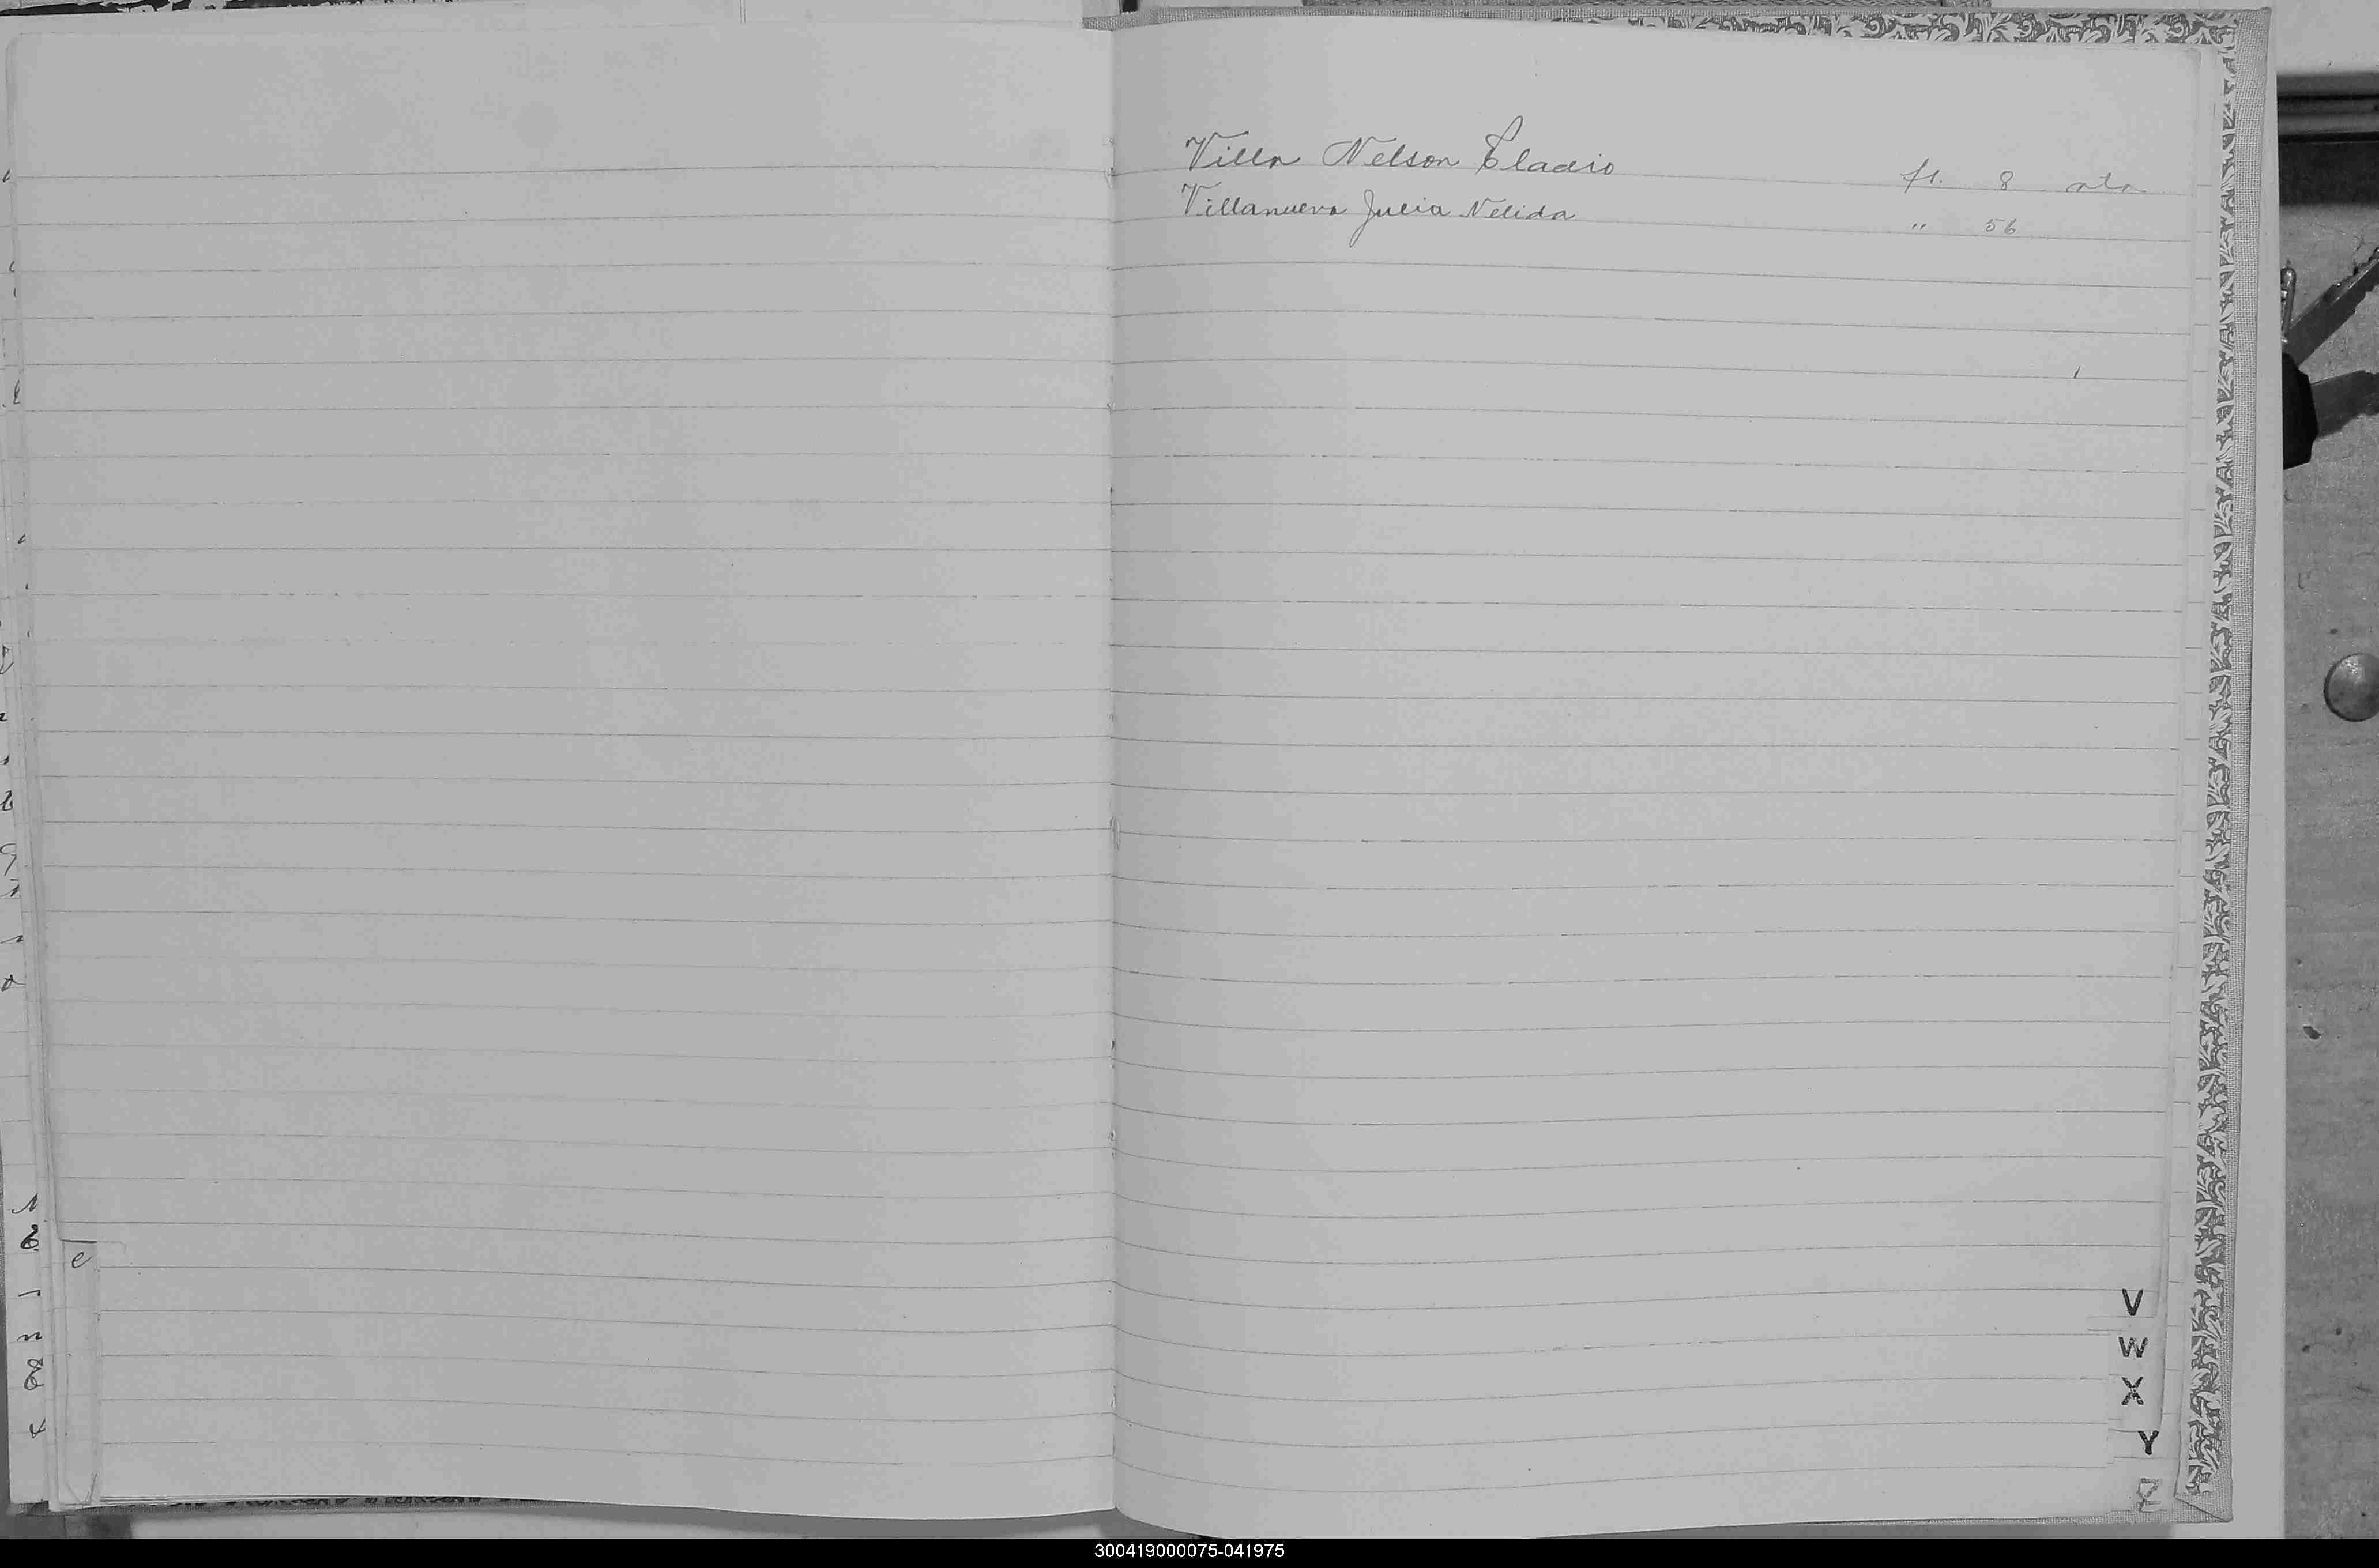 Villa Nelson Eladio fl. 8 vta
Villanueva Julia Nelida " 56
V
W
X
Y
Z
300419000075-041975